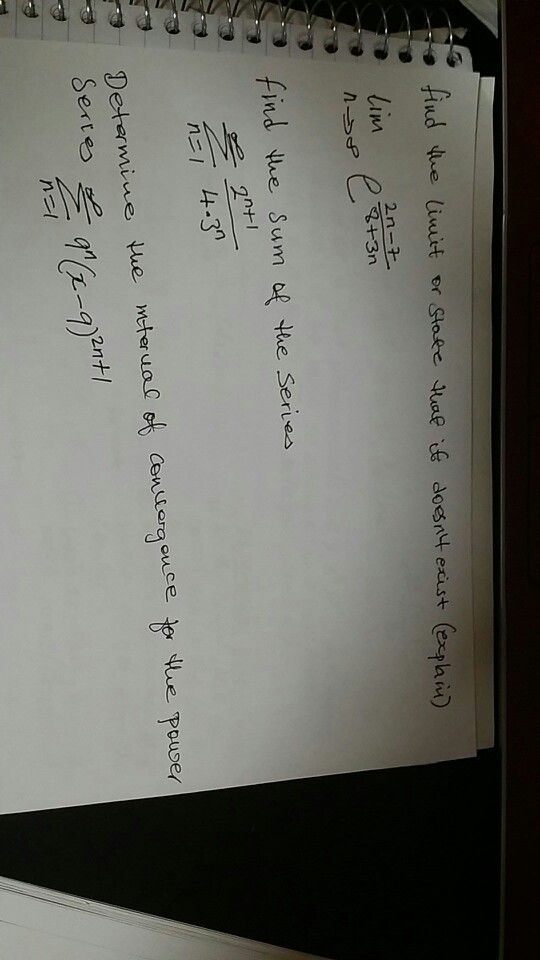 find the limit or state that it doesn't exist (explain)
lim n→∞ e^((2n-7)/(8+3n))
find the sum of the series
∞ Σ n=1 2^(n+1)/(4·3^n)
Determine the interval of convergence for the power
series ∞ Σ n=1 9^n (x-9)^(2n+1)